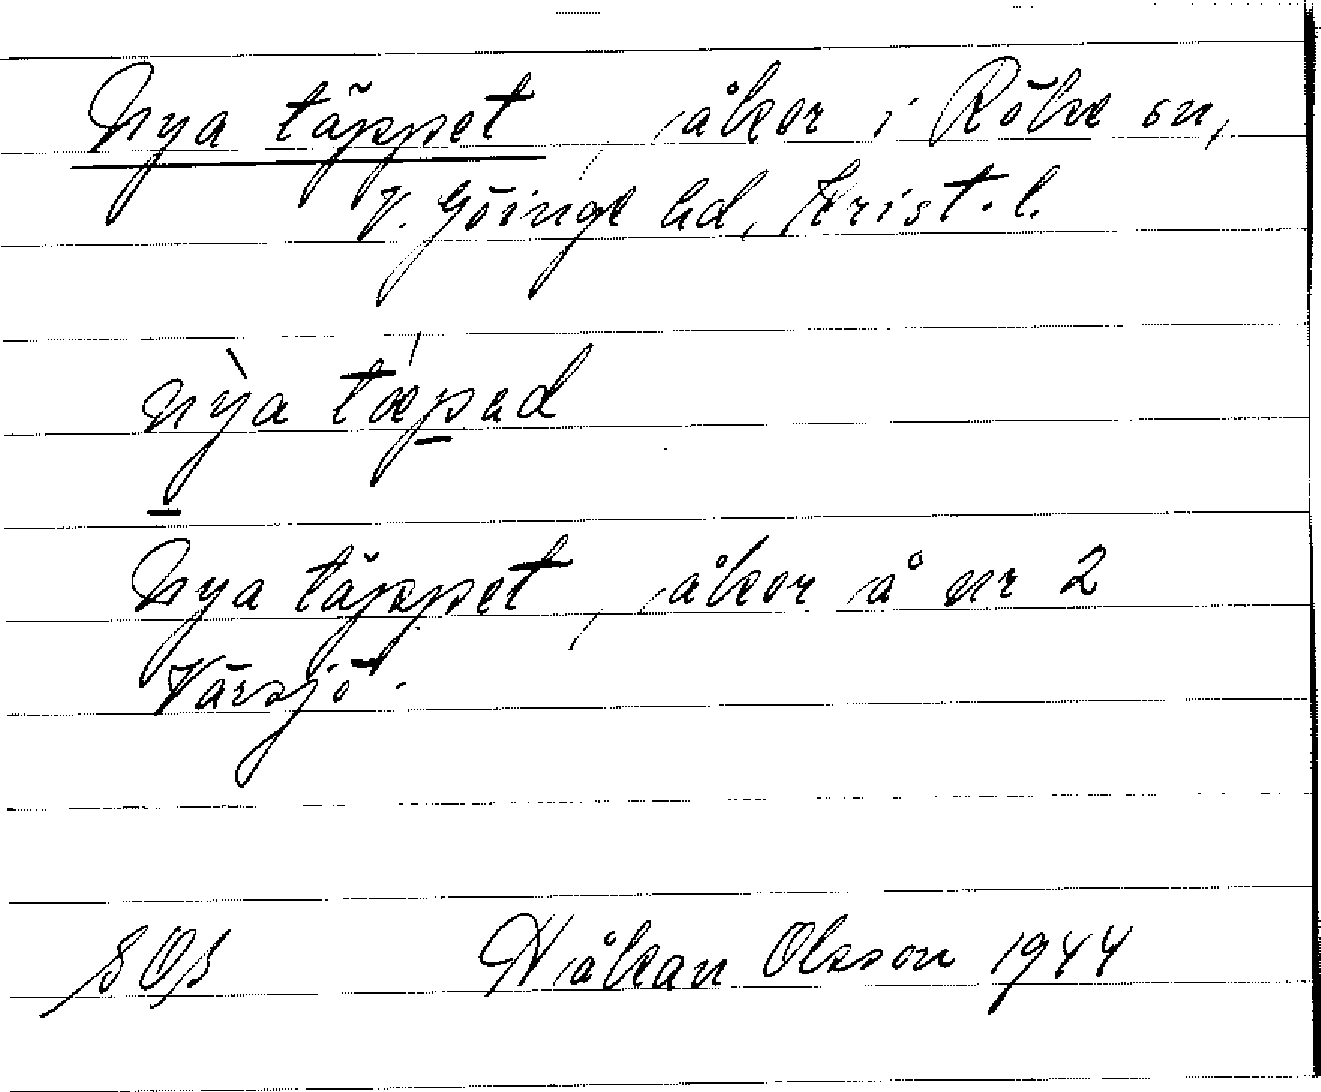 Nya täppet, åker i Röke sn,
V. Göinge hd, Krist. l.
nỳa tǽpad
Nya täppet, åker å nr 2
Värsjö.
Håkan Olsson 1944